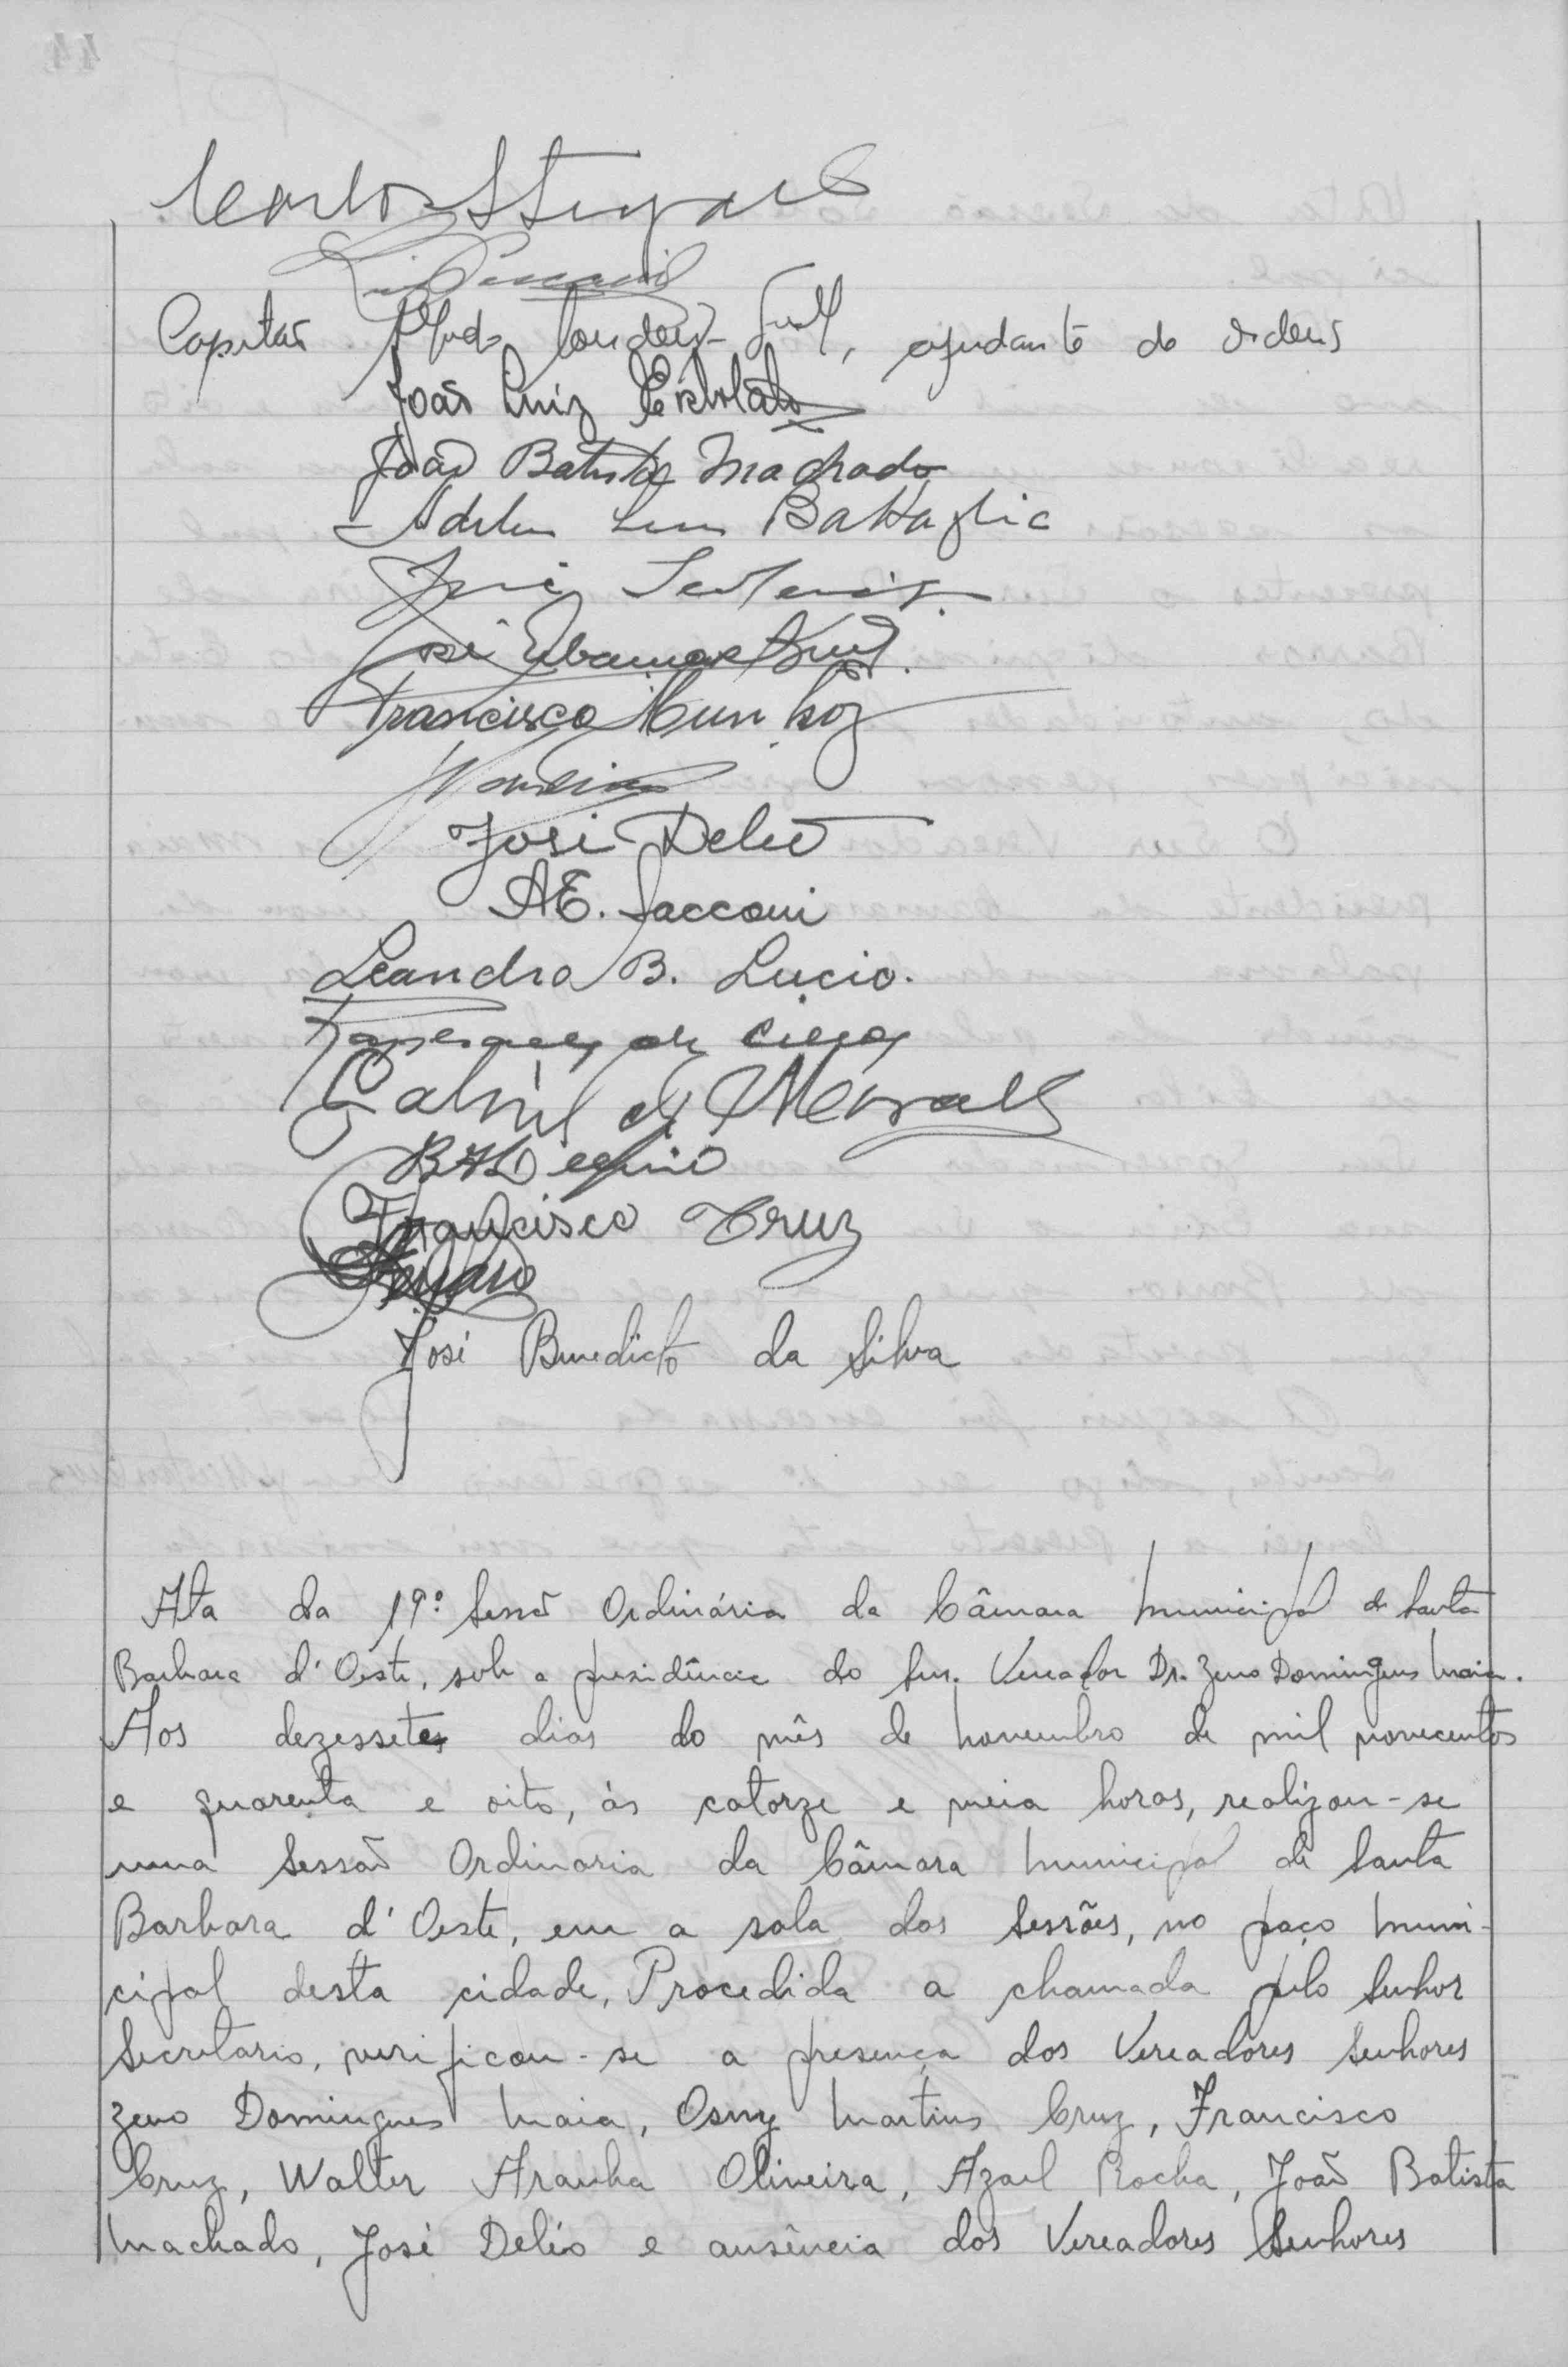 Carlos Steagall
Capitão ajudante de ordens
João Luiz
João Batista Machado
Battaglia
José
José
Francisco Munhoz
José Delio
A E. Sacconi
Leandro B. Lucio.
Gabriel de Moraes
Francisco Cruz
José Benedicto da Silva
Ata da 19ª Sessão Ordinária da Câmara Municipal de Santa
Barbara d'Oeste, sob a presidência do Snr. Vereador Dr. Zeno Domingues Maia.
Aos dezessete dias do mês de Novembro de mil novecentos
e quarenta e oito, ás catorze e meia horas, realizou-se
uma Sessão Ordinaria da Câmara Municipal de Santa
Barbara d'Oeste, em a sala das Sessões, no paço Muni-
cipal desta cidade. Procedida a chamada pelo Senhor
Secretario, verificou-se a presença dos Vereadores Senhores
Zeno Domingues Maia, Osny Martins Cruz, Francisco
Cruz, Walter Aranha Oliveira, Azael Rocha, João Batista
Machado, José Delio e ausência dos Vereadores Senhores